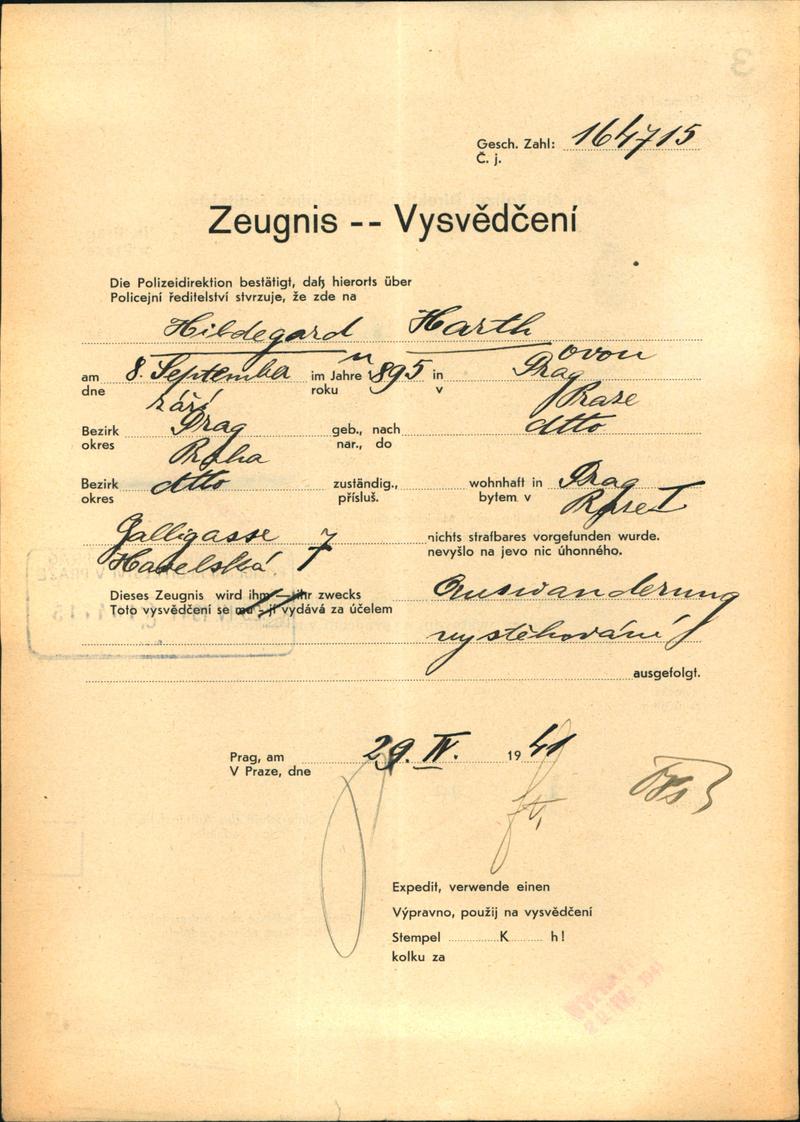 Gesch. Zahl: 164715
Č. j.
Zeugnis -- Vysvědčení
Die Polizeidirektion bestätigt, daß hierorts über
Policejní ředitelství stvrzuje, že zde na
Hildegard Harth
ovou
am 8. September im Jahre 1895 in Prag
dne září roku v Praze
Bezirk Prag geb., nach dtto
okres Praha nar., do
Bezirk dtto zuständig., wohnhaft in Prag
okres přísluš. bytem v Praze I
Galligasse 7 nichts strafbares vorgefunden wurde.
Havelská nevyšlo na jevo nic úhonného.
Dieses Zeugnis wird ihm — ihr zwecks Auswanderung
Toto vysvědčení se mu - jí vydává za účelem
vystěhování
ausgefolgt.
Prag, am 29. IV. 1941
V Praze, dne
Expedit, verwende einen
Výpravno, použij na vysvědčení
Stempel K h!
kolku za